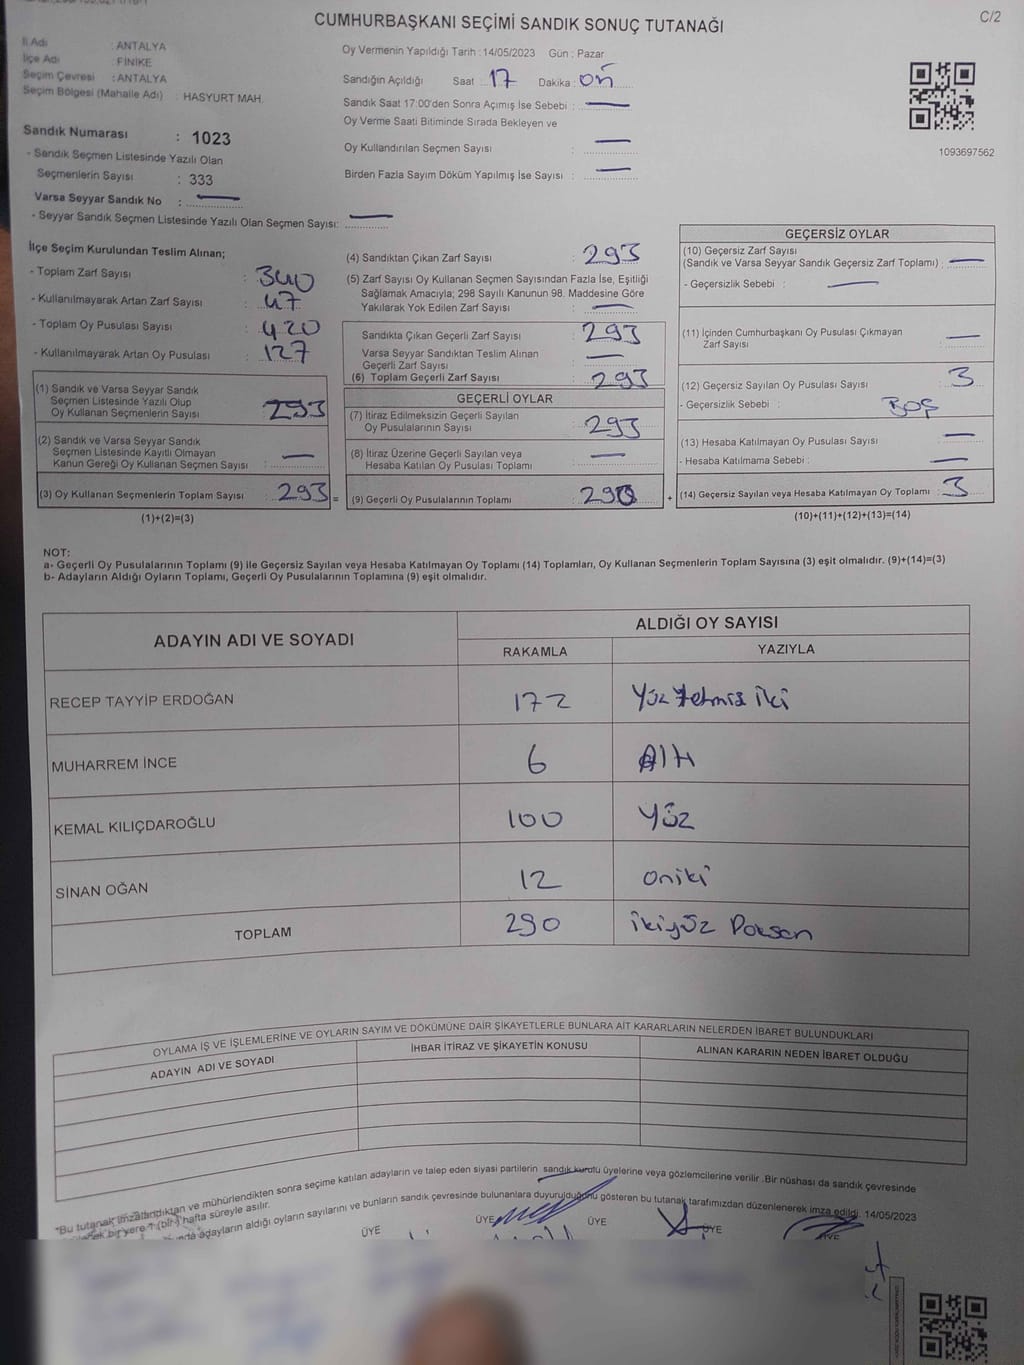 CUMHURBAŞKANI SEÇİMİ SANDIK SONUÇ TUTANAĞI
C/2
İl Adı : ANTALYA
İlçe Adı : FİNİKE
Seçim Çevresi : ANTALYA
Seçim Bölgesi (Mahalle Adı) : HASYURT MAH.
Oy Vermenin Yapıldığı Tarih : 14/05/2023 Gün : Pazar
Sandığın Açıldığı Saat : 17 Dakika : on
Sandık Saat 17:00'den Sonra Açımış İse Sebebi : —
Oy Verme Saati Bitiminde Sırada Bekleyen ve
Oy Kullandırılan Seçmen Sayısı : —
Birden Fazla Sayım Döküm Yapılmış İse Sayısı : —
1093697562
Sandık Numarası : 1023
- Sandık Seçmen Listesinde Yazılı Olan
Seçmenlerin Sayısı : 333
Varsa Seyyar Sandık No : —
- Seyyar Sandık Seçmen Listesinde Yazılı Olan Seçmen Sayısı: —
İlçe Seçim Kurulundan Teslim Alınan;
- Toplam Zarf Sayısı : 340
- Kullanılmayarak Artan Zarf Sayısı : 47
- Toplam Oy Pusulası Sayısı : 420
- Kullanılmayarak Artan Oy Pusulası : 127
(1) Sandık ve Varsa Seyyar Sandık
Seçmen Listesinde Yazılı Olup
Oy Kullanan Seçmenlerin Sayısı : 293
(2) Sandık ve Varsa Seyyar Sandık
Seçmen Listesinde Kayıtlı Olmayan
Kanun Gereği Oy Kullanan Seçmen Sayısı : —
(3) Oy Kullanan Seçmenlerin Toplam Sayısı : 293 =
(1)+(2)=(3)
(4) Sandıktan Çıkan Zarf Sayısı : 293
(5) Zarf Sayısı Oy Kullanan Seçmen Sayısından Fazla İse, Eşitliği
Sağlamak Amacıyla; 298 Sayılı Kanunun 98. Maddesine Göre
Yakılarak Yok Edilen Zarf Sayısı : —
Sandıkta Çıkan Geçerli Zarf Sayısı : 293
Varsa Seyyar Sandıktan Teslim Alınan
Geçerli Zarf Sayısı : —
(6) Toplam Geçerli Zarf Sayısı : 293
GEÇERLİ OYLAR
(7) İtiraz Edilmeksizin Geçerli Sayılan
Oy Pusulalarının Sayısı : 293
(8) İtiraz Üzerine Geçerli Sayılan veya
Hesaba Katılan Oy Pusulası Toplamı : —
(9) Geçerli Oy Pusulalarının Toplamı : 290 +
GEÇERSİZ OYLAR
(10) Geçersiz Zarf Sayısı
(Sandık ve Varsa Seyyar Sandık Geçersiz Zarf Toplamı) : —
- Geçersizlik Sebebi : —
(11) İçinden Cumhurbaşkanı Oy Pusulası Çıkmayan
Zarf Sayısı : —
(12) Geçersiz Sayılan Oy Pusulası Sayısı : 3
- Geçersizlik Sebebi : BOŞ
(13) Hesaba Katılmayan Oy Pusulası Sayısı : —
- Hesaba Katılmama Sebebi : —
(14) Geçersiz Sayılan veya Hesaba Katılmayan Oy Toplamı : 3
(10)+(11)+(12)+(13)=(14)
NOT:
a- Geçerli Oy Pusulalarının Toplamı (9) ile Geçersiz Sayılan veya Hesaba Katılmayan Oy Toplamı (14) Toplamları, Oy Kullanan Seçmenlerin Toplam Sayısına (3) eşit olmalıdır. (9)+(14)=(3)
b- Adayların Aldığı Oyların Toplamı, Geçerli Oy Pusulalarının Toplamına (9) eşit olmalıdır.
ADAYIN ADI VE SOYADI
ALDIĞI OY SAYISI
RAKAMLA YAZIYLA
RECEP TAYYİP ERDOĞAN 172 Yüz Yetmiş iki
MUHARREM İNCE 6 Altı
KEMAL KILIÇDAROĞLU 100 Yüz
SİNAN OĞAN 12 oniki
TOPLAM 290 ikiyüz Doksan
OYLAMA İŞ VE İŞLEMLERİNE VE OYLARIN SAYIM VE DÖKÜMÜNE DAİR ŞİKAYETLERLE BUNLARA AİT KARARLARIN NELERDEN İBARET BULUNDUKLARI
ADAYIN ADI VE SOYADI
İHBAR İTİRAZ VE ŞİKAYETİN KONUSU
ALINAN KARARIN NEDEN İBARET OLDUĞU
"Bu tutanak imzalandıktan ve mühürlendikten sonra seçime katılan adayların ve talep eden siyasi partilerin sandık kurulu üyelerine veya gözlemcilerine verilir. Bir nüshası da sandık çevresinde
bir yere 1 (bir) hafta süreyle asılır.
adayların aldığı oyların sayılarını ve bunların sandık çevresinde bulunanlara duyurulduğunu gösteren bu tutanak tarafımızdan düzenlenerek imza edildi. 14/05/2023
ÜYE ÜYE ÜYE ÜYE ÜYE